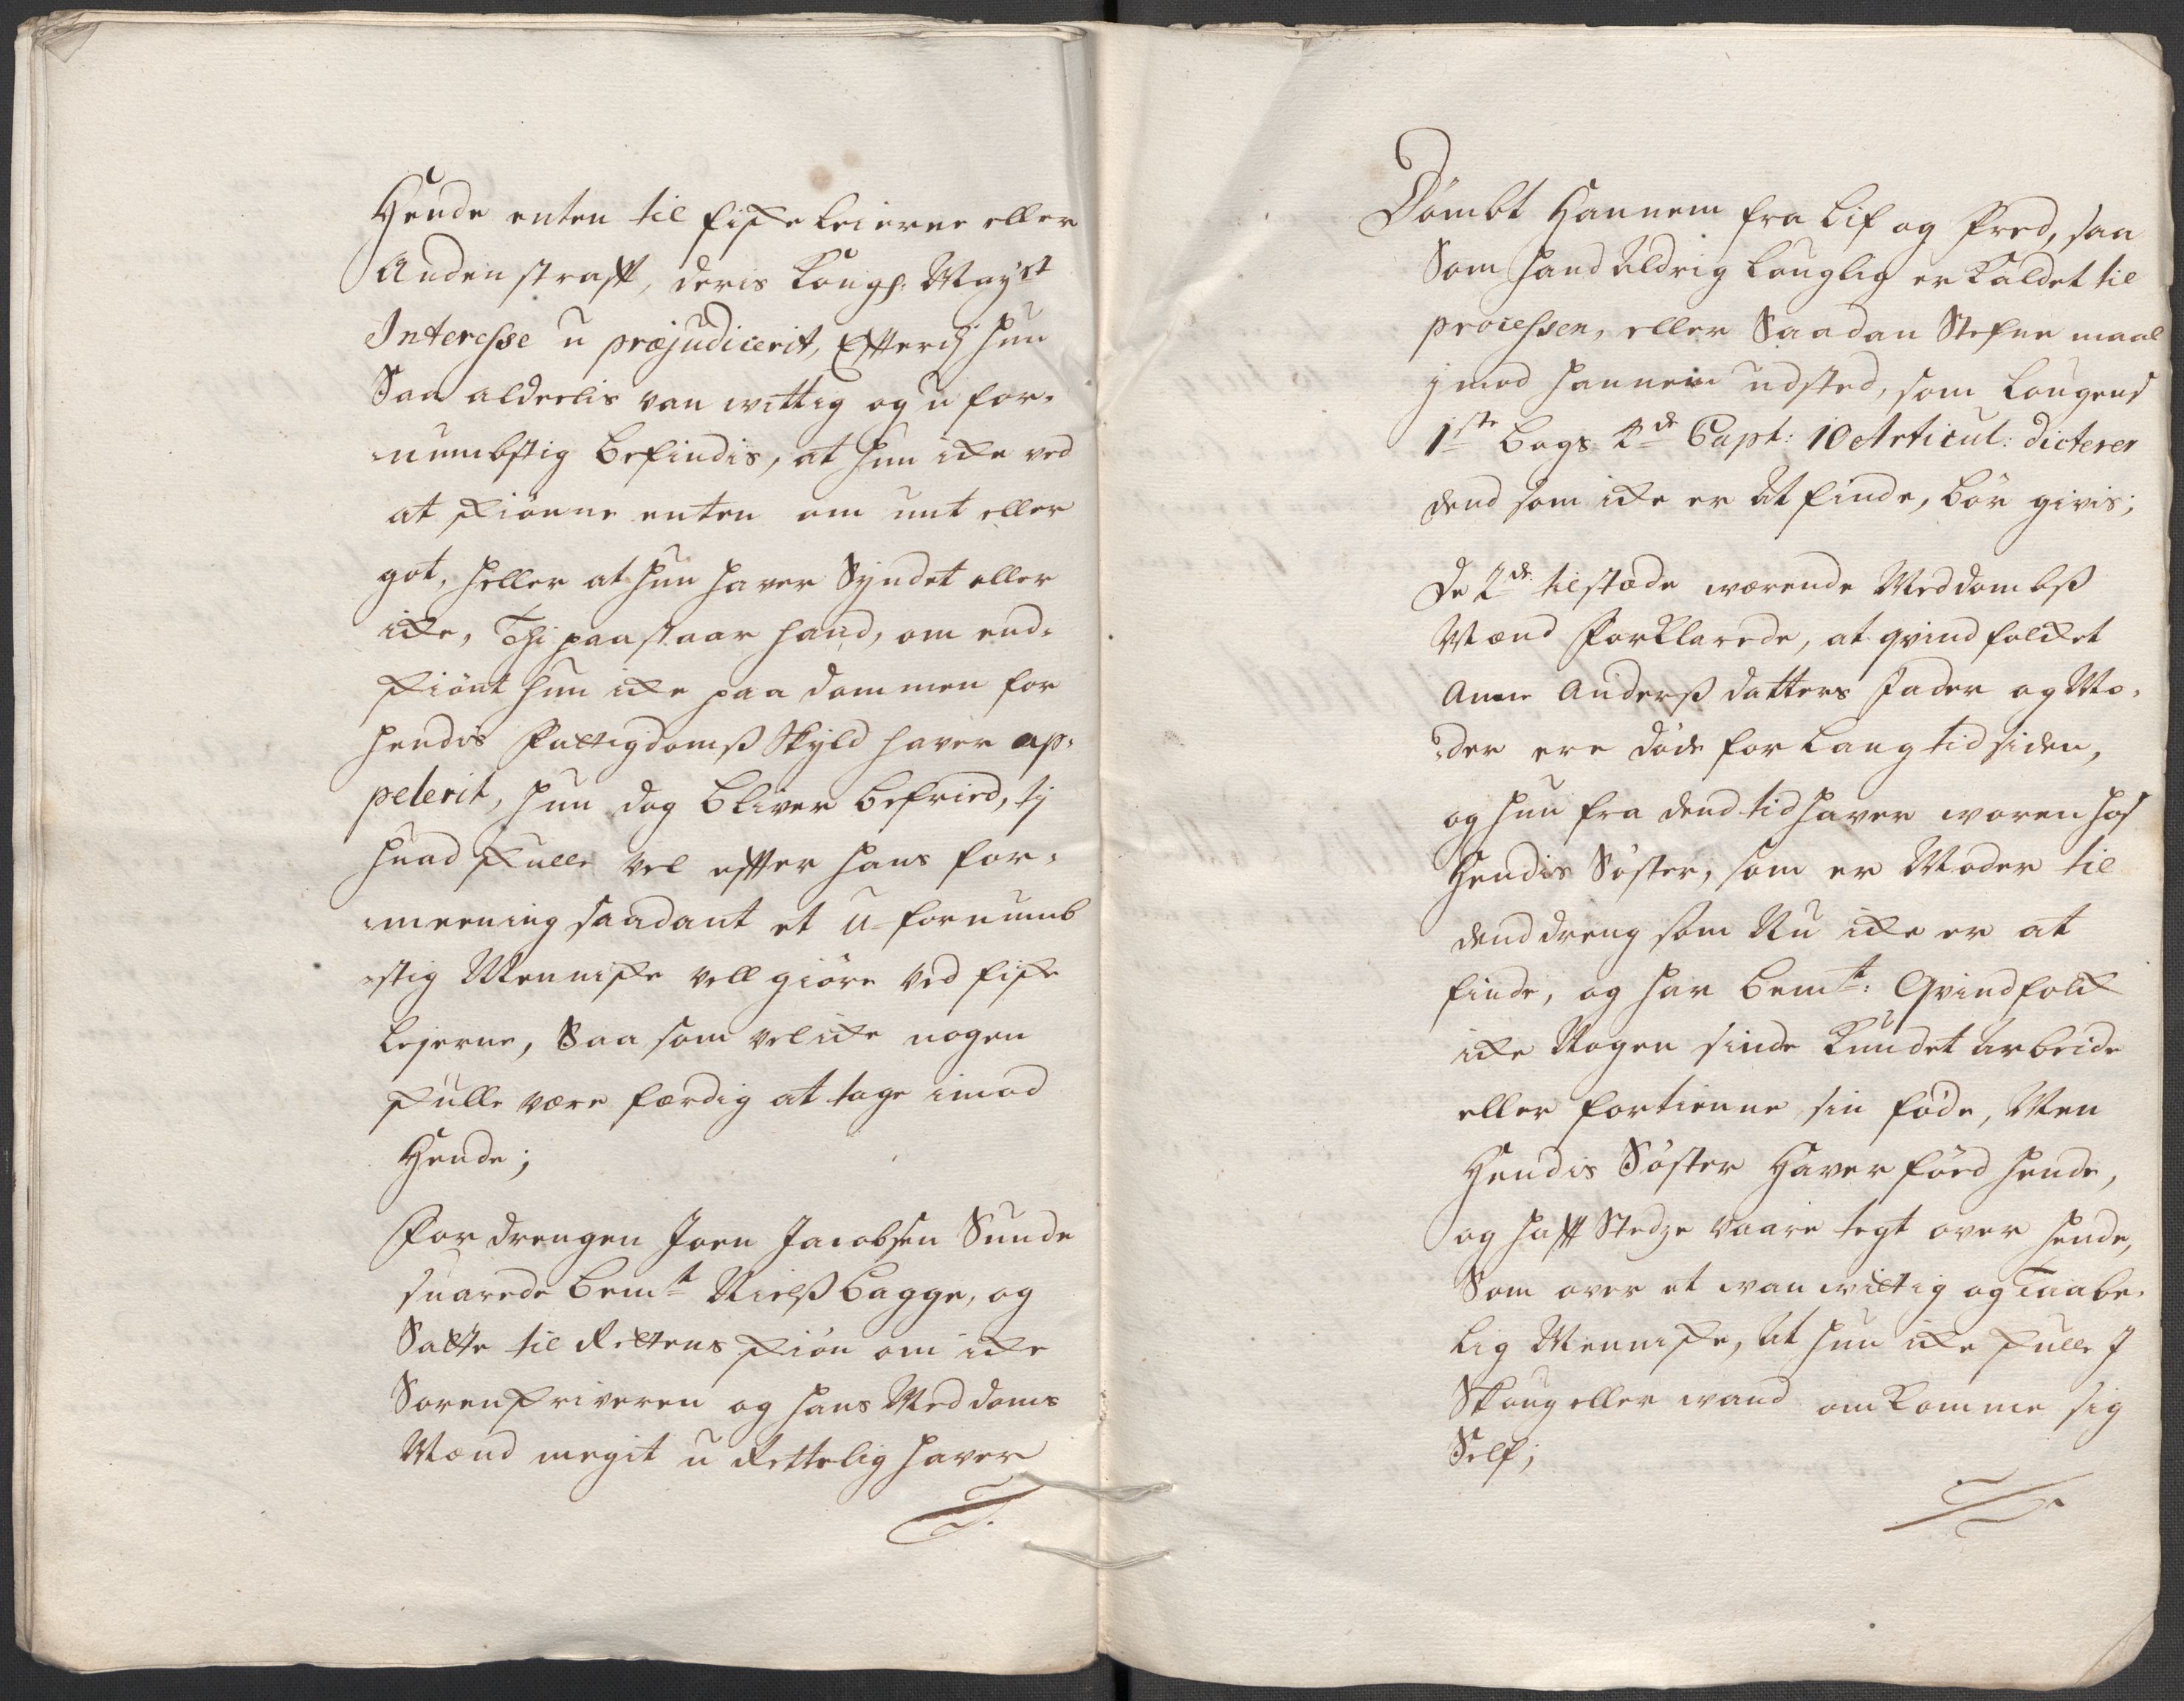 Hende enten til fiske leierne eller
Anden straff, deris Kongl: Mayst
Interesse u præjudicerit, Efterdj hun
Saa alderlis van wittig og u for-
numbstig befindis, at hun icke ved
at skiönne enten om unt eller
got, heller at hun haver Syndet eller
icke, Thi paastaar hand, om end-
skiönt hun icke paa dommen for
hendis Fattigdomß Skyld haver ap-
pelerit, hun dog bliver befried, ty
huad skulle vel effter hans for-
meening saadant et u-fornumb
stig Menniske vell giöre ved fiske
lejerne, Saa som vel icke nogen
skulle være færdig at tage imod
Hende;
For drengen Joen Jacobsen Sunde
suarede bemt Nielß Bagge, og
Satte til Rettens skiön om icke
Sorenskriveren og hans Meddoms
Mænd megit u Rettelig haver
Dömbt Hannem fra Lif og Fred, saa
Som hand Aldrig louglig er Kaldet til
processen, eller Saadan Stefne maal
j mod hannem udsted, som Lougens
1ste bogs 2de Capt: 10 Articul: dicterer
dend som icke er At finde, bör givis;
De 2de tilstæde wærende Meddombß
Mænd Forklarede, at qvindfolcket
Anne Anderß datters Fader og Mo-
der ere döde for lang tid siden,
og hun fra dend tid haver woren hos
Hendis Söster, som er Moder til
dend dreng som Nu icke er at
finde, og har bemte: Qvindfolck
icke Nogen sinde Kundet Arbeide
eller fortienne sin föde, Men
Hendis Söster Haver föed hende,
og hafft Stedze vaare tegt over hende,
Som over et wan wittig og Taabe-
lig Menniske, At hun icke skulle J
Skoug eller wand omkomme sig
Self;